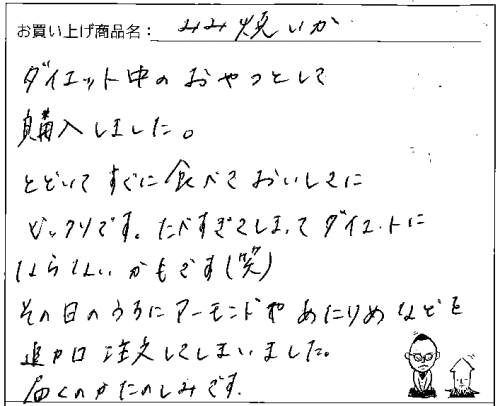 お買い上げ商品名： みみ焼いか
ダイエット中のおやつとして
購入しました。
とどいてすぐに食べておいしさに
ビックリです。たべすぎてしまってダイエットに
ならないかもです(笑)
その日のうちにアーモンドやあたりめなどを
追加口注文してしまいました。
届くのがたのしみです。